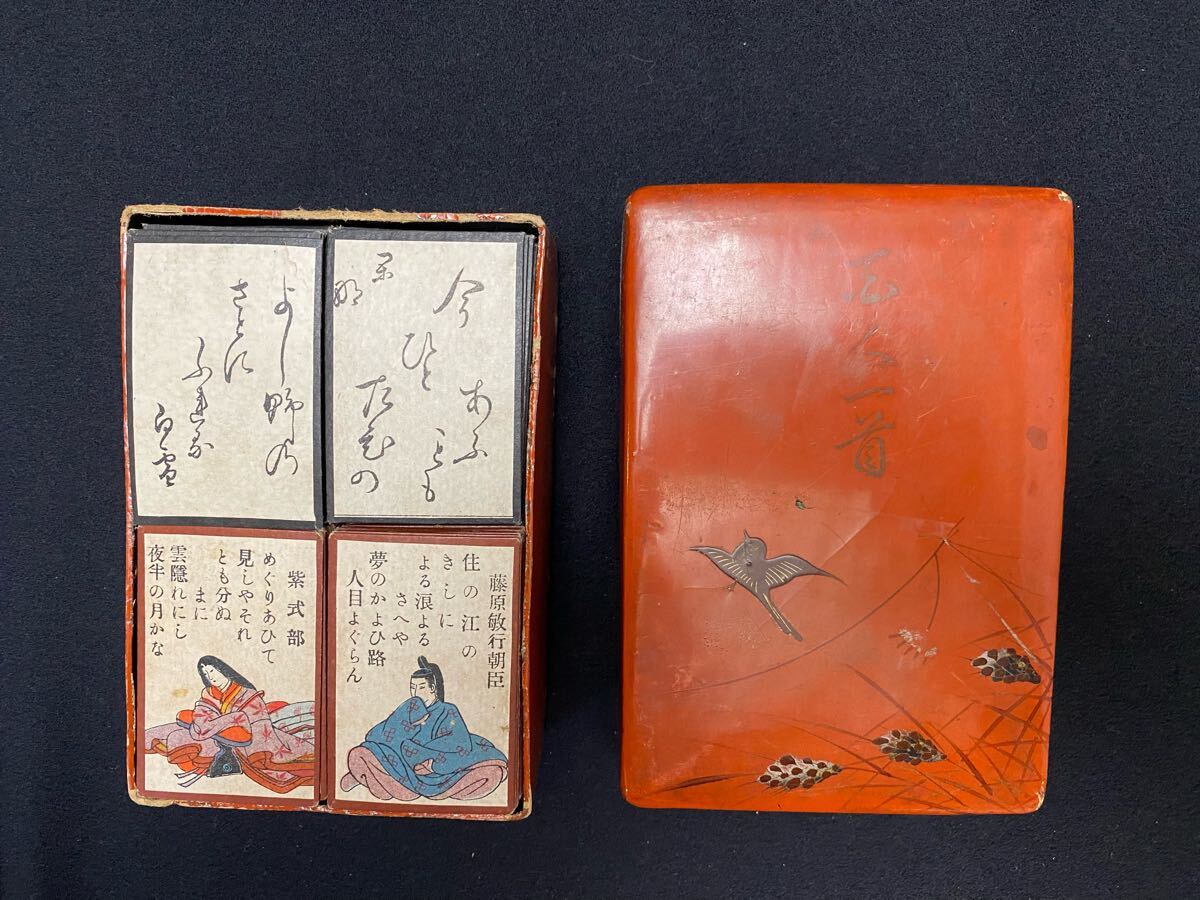 よし野乃
さとに
ふれる
白雪
今
あふ
ひと
こと
も
よし
那
紫式部
めぐりあひて
見しやそれ
とも分ぬ
まに
雲隠れにし
夜半の月かな
藤原敏行朝臣
住の江の
きしに
よる浪よる
さへや
夢のかよひ路
人目よぐらん
百人一首